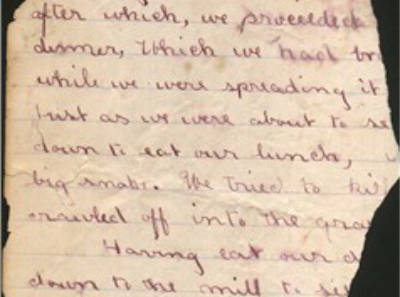 after which, we proceeded
dinner, which we had br
while we were spreading it
Just as we were about to se
down to eat our lunch,
big snake. We tried to kil
crawled off into the gras
Having eat our d
down to the mill to se